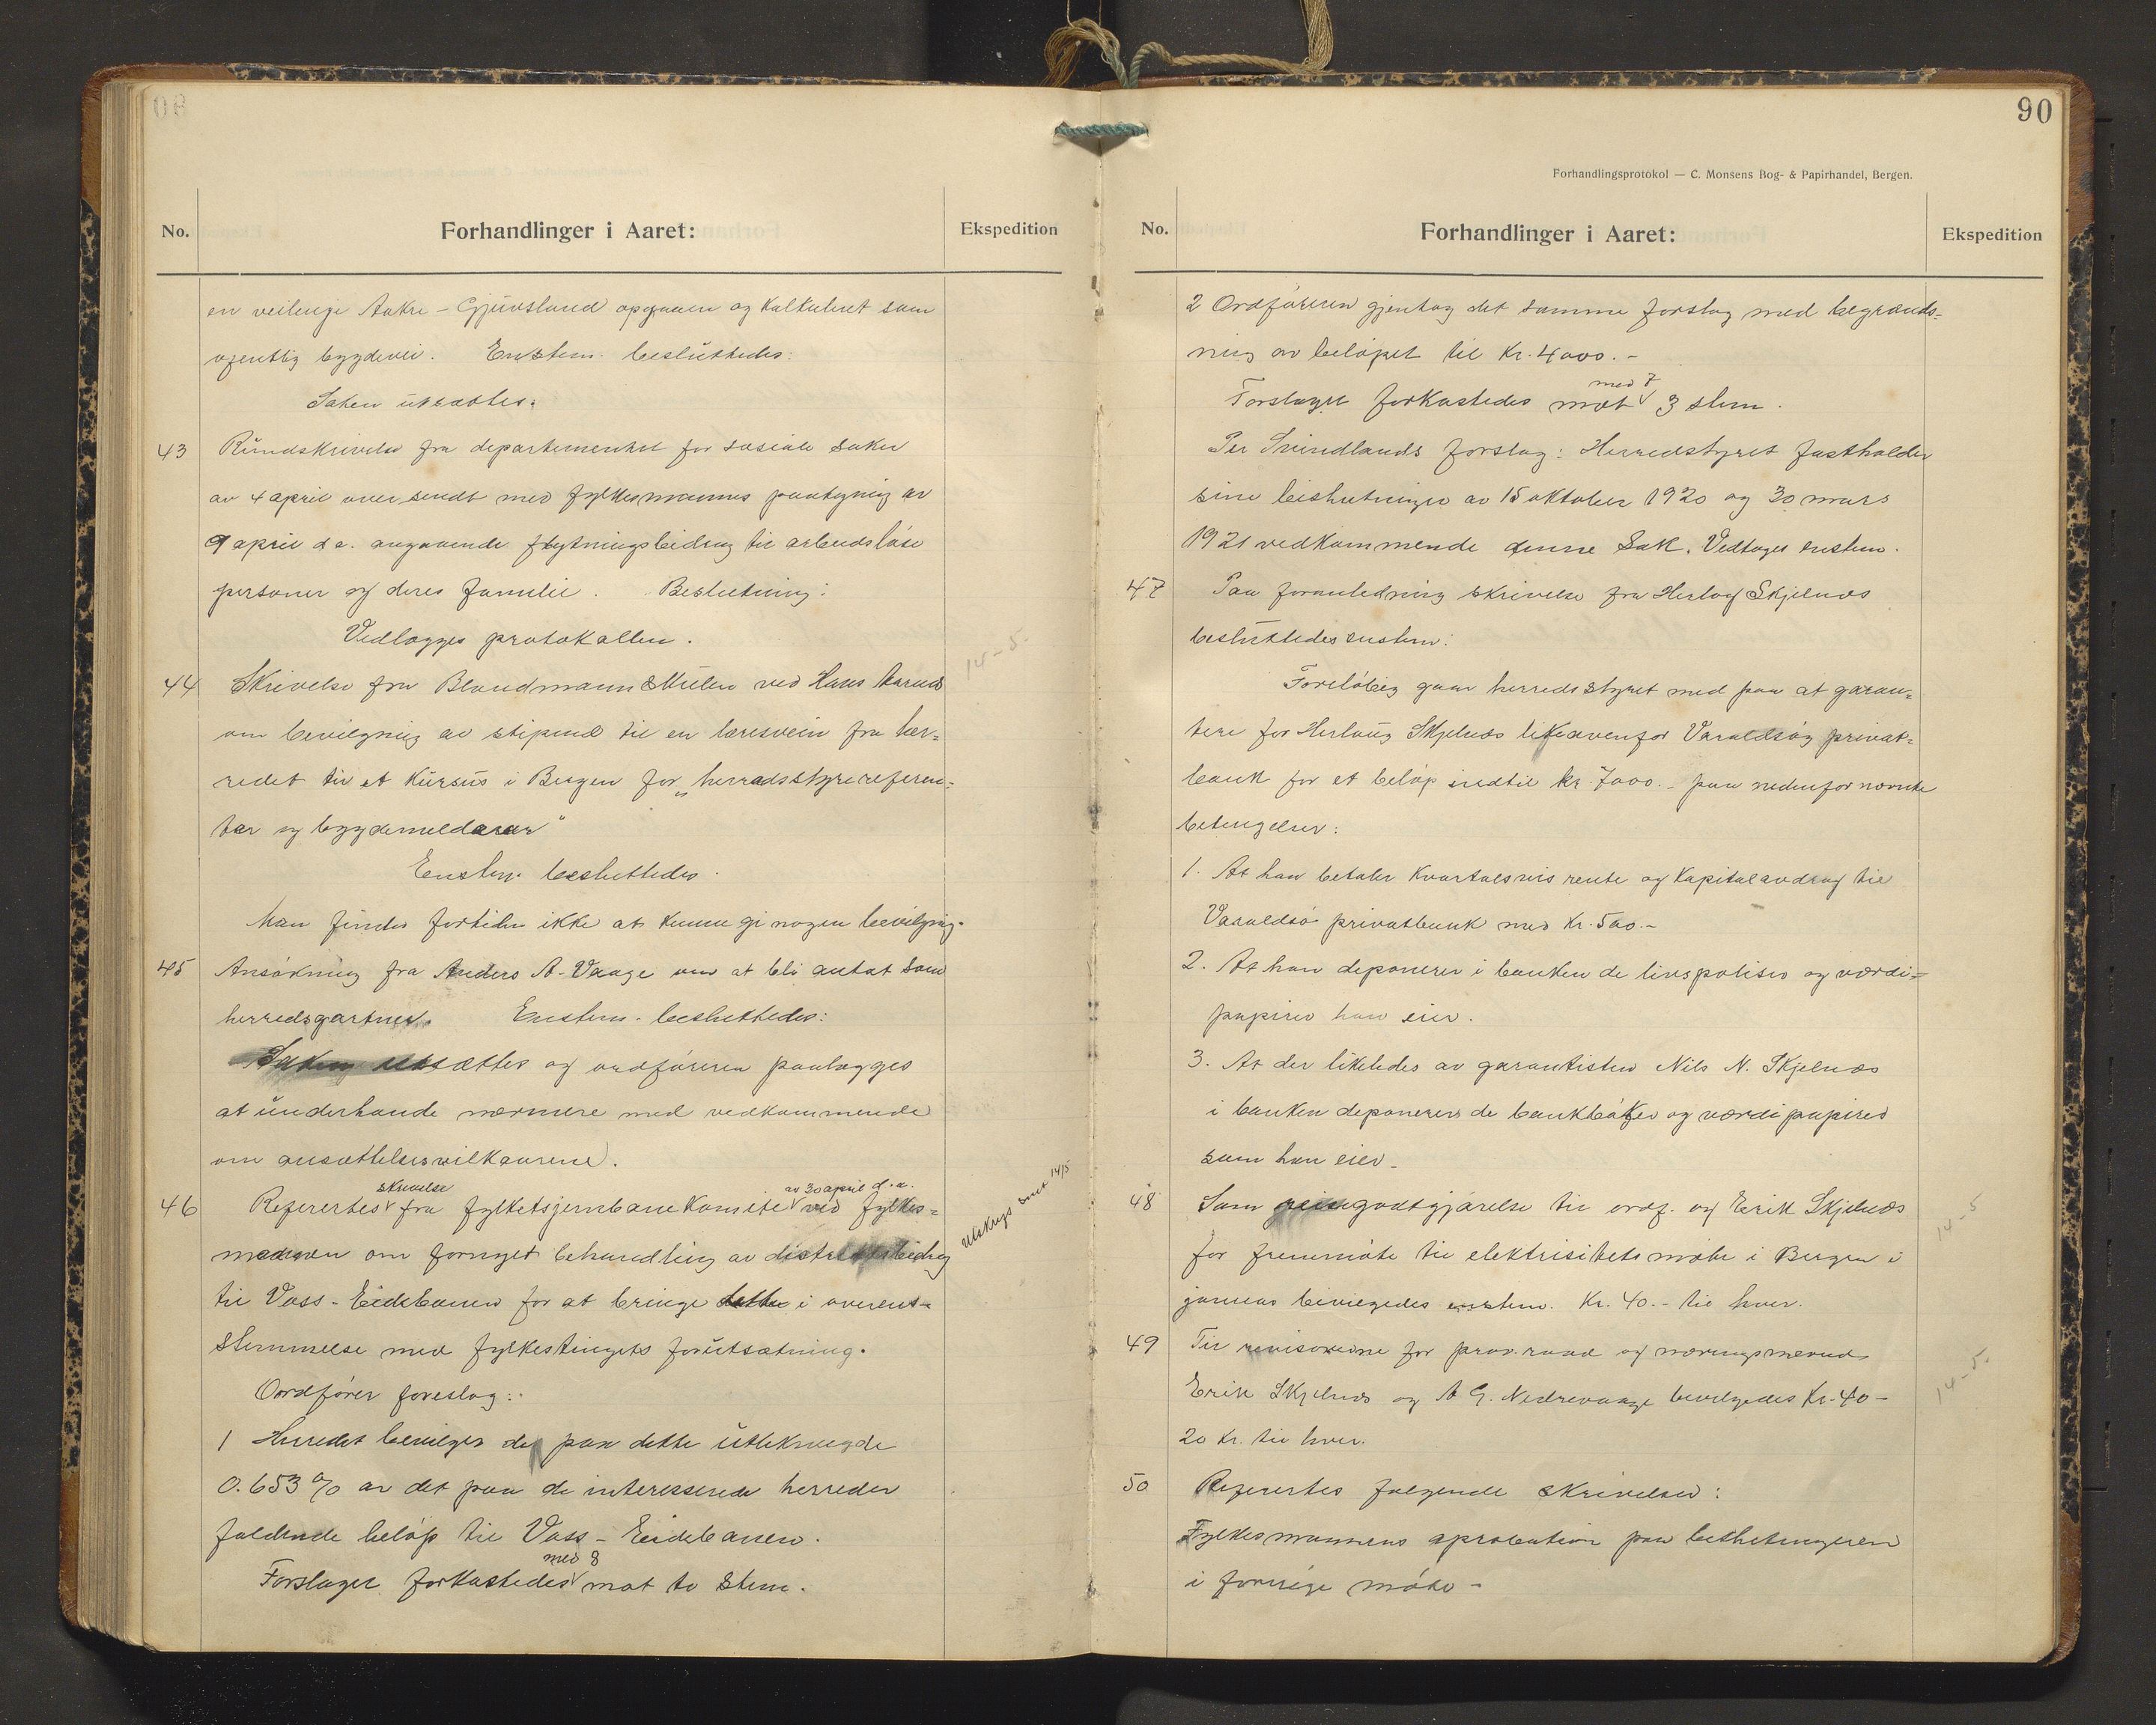 No.
Forhandlinger i Aaret:
Ekspedition
en veilenge Aakre - Gjuvsland opgaaen og kalkuleret som
ofentlig bygdevei. Enstem. besluttedes:
Saken utsættes.
43 Rundskrivelse fra departementet for sosiale saker
av 4 april oversendt med fylkesmannens paategning av
9 april d a. angaaende flytningsbidrag til arbeidsløse
personer og deres familie. Beslutning:
Vedlægges protokollen.
44 Skrivelse fra Bondmannskulen ved Hans
om bevilgning av stipend til en læresvein fra her=
redet til et Kursus i Bergen for „herradsstyrereferen=
tar og bygdemeldarar"
Enstem. besluttedes.
Man finder fortiden ikke at kunne gi nogen bevilgning.
14-5-
45 Ansökning fra Anders A. Vaage om at bli antat som
herredsgartner. Enstem. besluttedes:
Saken utsættes og ordföreren paalægges
at underhandle nærmere med vedkommende
om ansættelsesvilkaarene.
46 Referertes skrivelse fra fylketsjernbanekomite av 30 april d.a. ved fylkes=
mannen om fornyet behandling av distriktsbidrag
til Voss-Eidebanen for at bringe dette i overens=
stemmelse med fylkestingets forutsætning.
Utskrift sendt 14/5
Oordförer foreslog:
1 Herredet bevilges det paa dette utteknegde
0.653 % av det paa de interesserede herreder
faldende belöp til Voss-Eidebanen.
Forslaget forkastedes med 8 mot to stem.
90
Forhandlingsprotokol — C. Monsens Bog- & Papirhandel, Bergen.
No.
Forhandlinger i Aaret:
Ekspedition
2 Ordföreren gjentog det samme forslag med begrænds=
ning av belöpet til Kr. 4000.-
Forslaget forkastedes med 7 mot 3 stem.
Per Svindlands forslag: Herredstyret fastholder
sine beslutninger av 15 oktober 1920 og 30 mars
1921 vedkommende denne Sak. Vedtages enstem.
47 Paa foranledning skrivelse fra Herlog Skjelnæs
besluttedes enstem:
Foreløbig gaar herredsstyret med paa at garan=
tere for Herlaug Skjelnæs likeovenfor Varaldsöy privat=
bank for et belöp indtil kr. 7000.- paa nedenfor nævnte
betingelser:
1. At han betaler kvartalsvis rente og kapitalavdrag til
Varaldsö privatbank med Kr. 500.-
2. At han deponerer i banken de livspoliser og værdi=
papirer han eier.
3. At der likeledes av garantisten Nils N. Skjelnæs
i banken deponeres de bankböker og værdipapirer
som han eier.
48 Som reisegodtgjörelse til ordf. og Erik Skjelnæs
for fremmöte til elektrisitetsmöte i Bergen i
januar bevilgedes enstem. Kr. 40.- til hver.
14-5
49 Til revisorerne for prov.raad og næringsnevnd
Erik Skjelnæs og A G. Nedrevaage bevilgedes Kr. 40-
20 Kr. til hver.
14-5-
50 Referertes følgende skrivelser:
Fylkesmannens aprobation paa beslutningeren
i forrige möte -